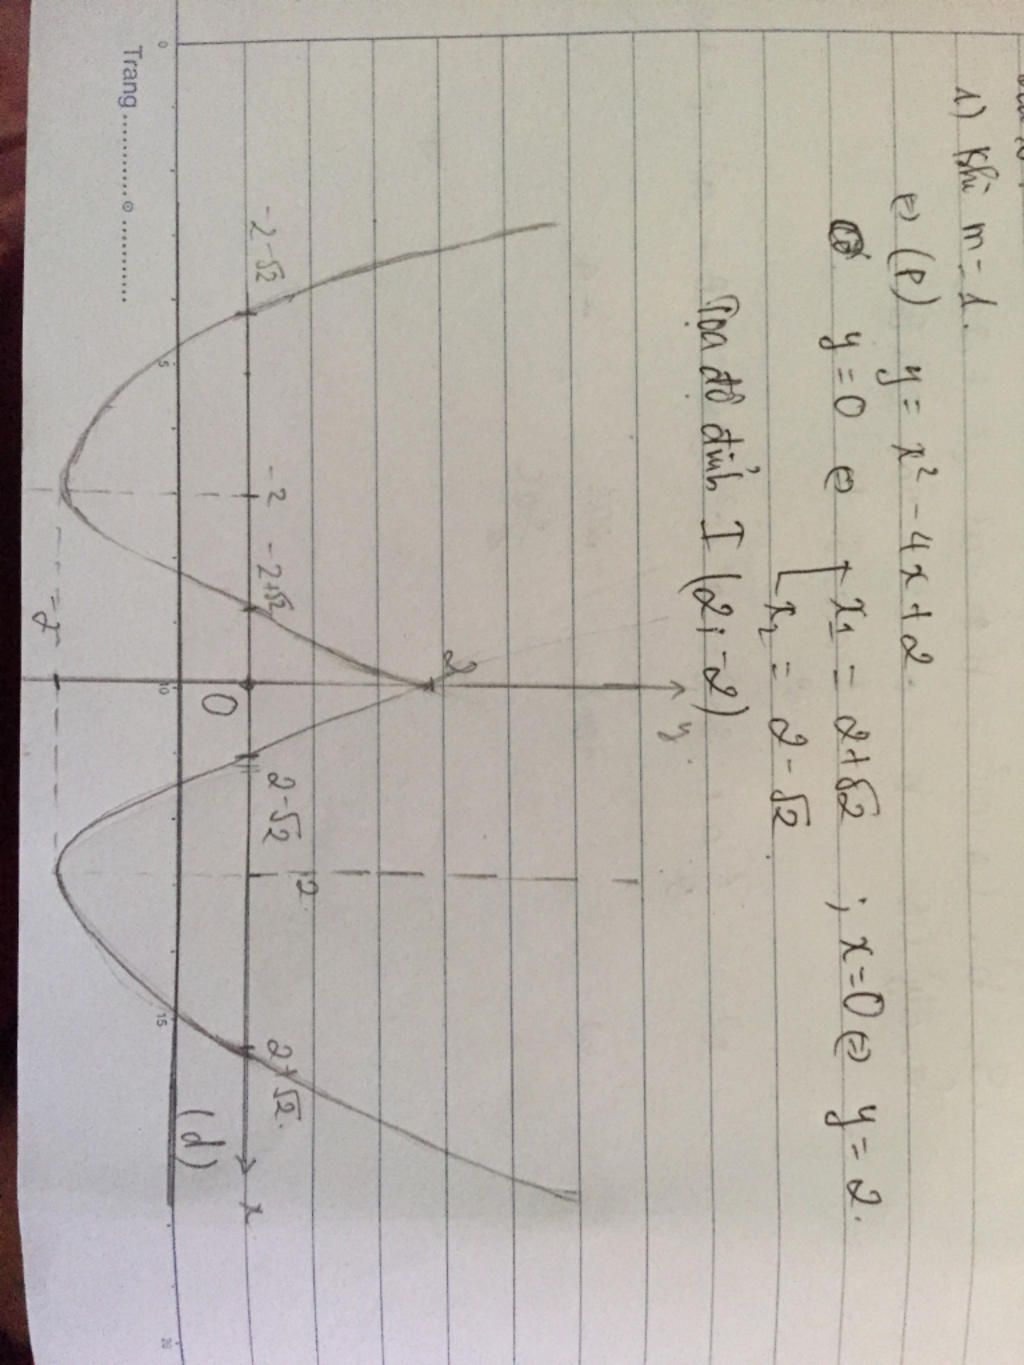 1) Khi m = 1.
⇔ (P) y = x² - 4x + 2.
y = 0 ⇔ [ x₁ = 2+√2 ; x = 0 ⇔ y = 2.
x₂ = 2-√2
Tọa độ đỉnh I (2; -2)
y
2
2
-2-√2 -2 -2+√2 2-√2 2+√2.
O x
(d)
-2
0 5 10 15 20
Trang